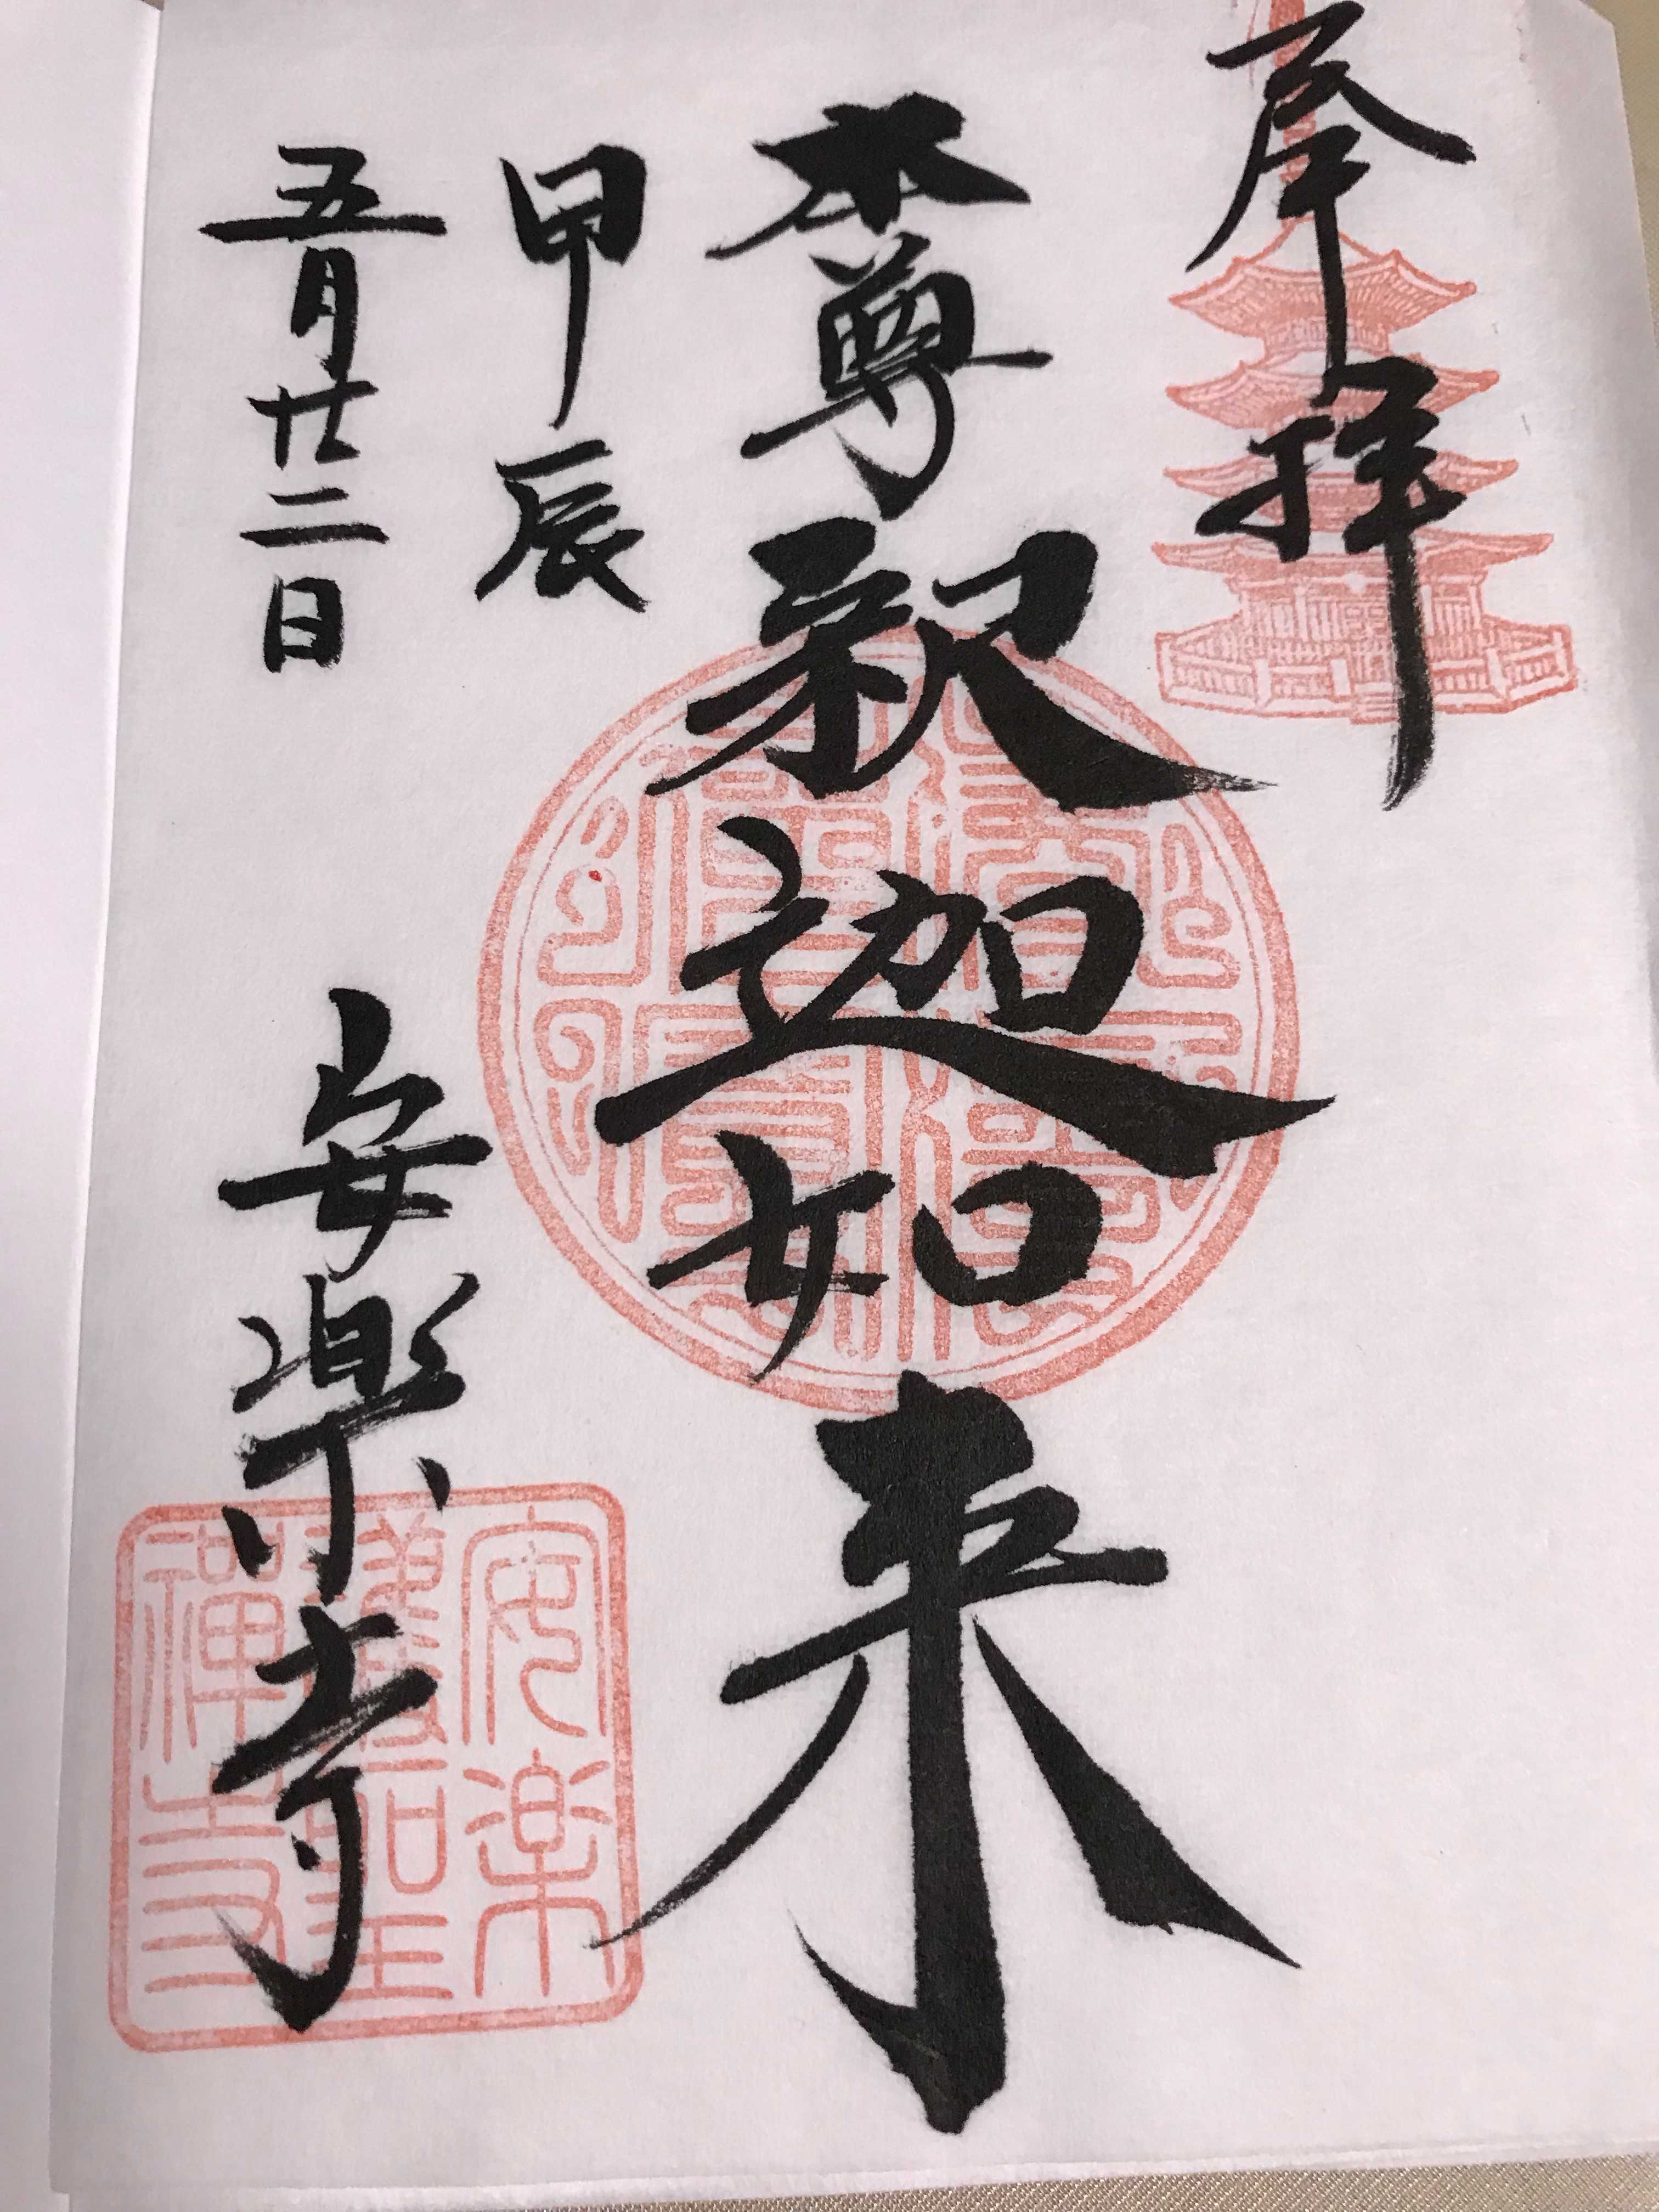 奉拝
本尊釈迦如来
甲辰
五月廿二日
安楽寺
安楽
禅寺